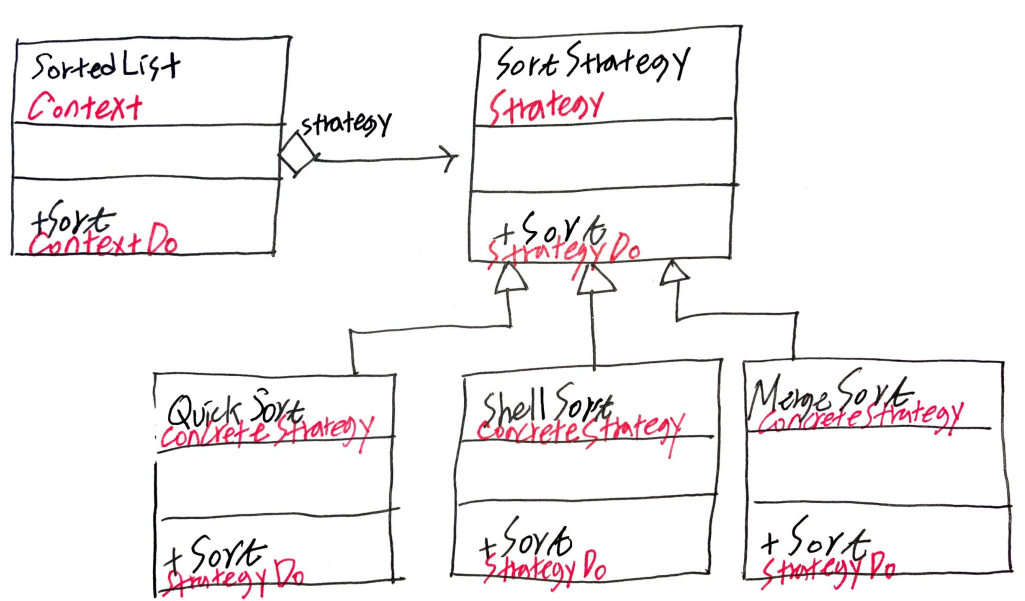 Sorted List
Context
+Sort
ContextDo
strategy
Sort Strategy
Strategy
+ Sort
StrategyDo
Quick Sort
ConcreteStrategy
+ Sort
StrategyDo
Shell Sort
ConcreteStrategy
+ Sort
StrategyDo
Merge Sort
ConcreteStrategy
+ Sort
StrategyDo